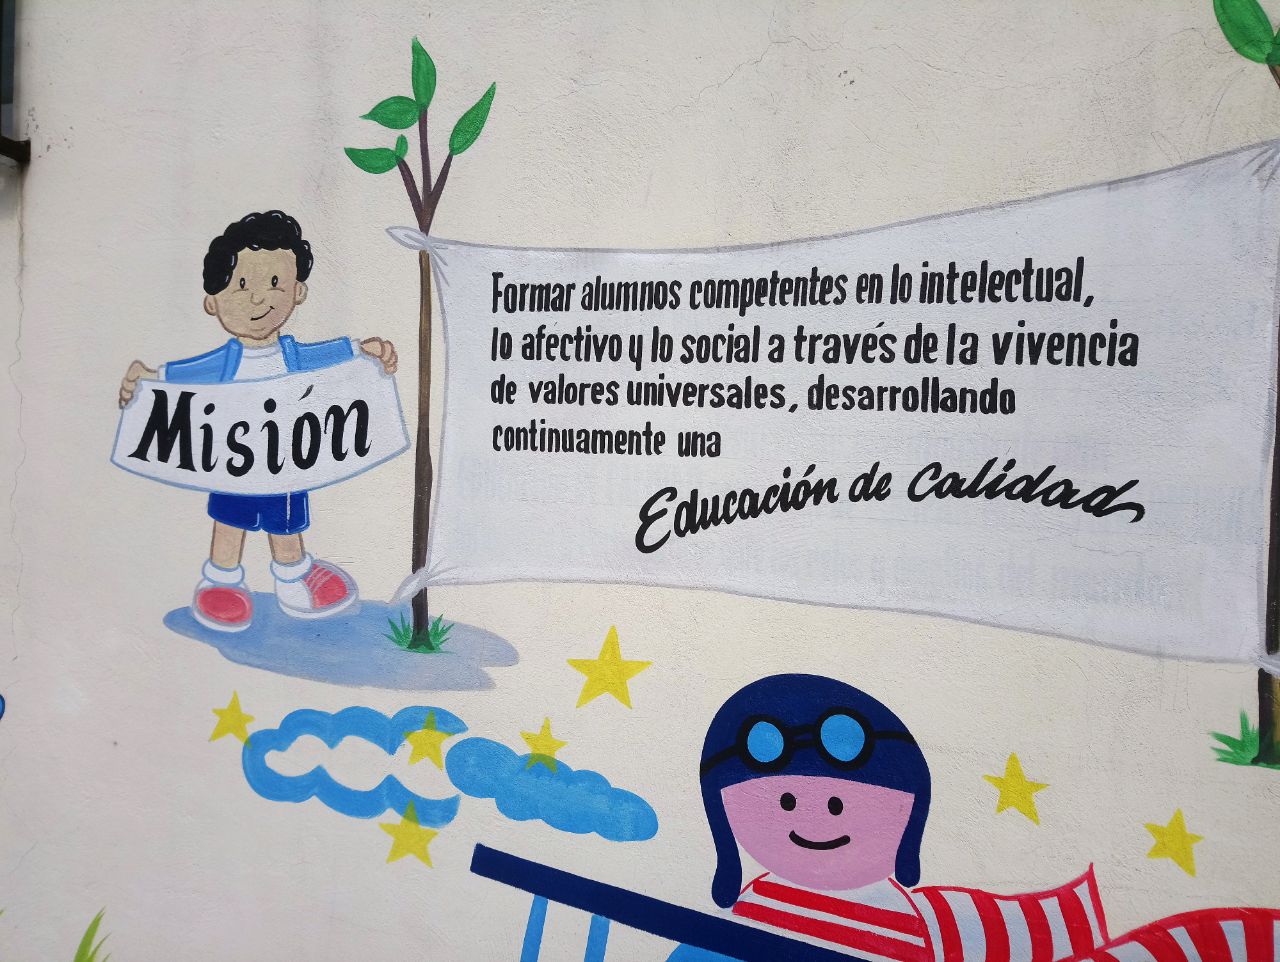 Misión
Formar alumnos competentes en lo intelectual,
lo afectivo y lo social a través de la vivencia
de valores universales, desarrollando
continuamente una
Educación de Calidad